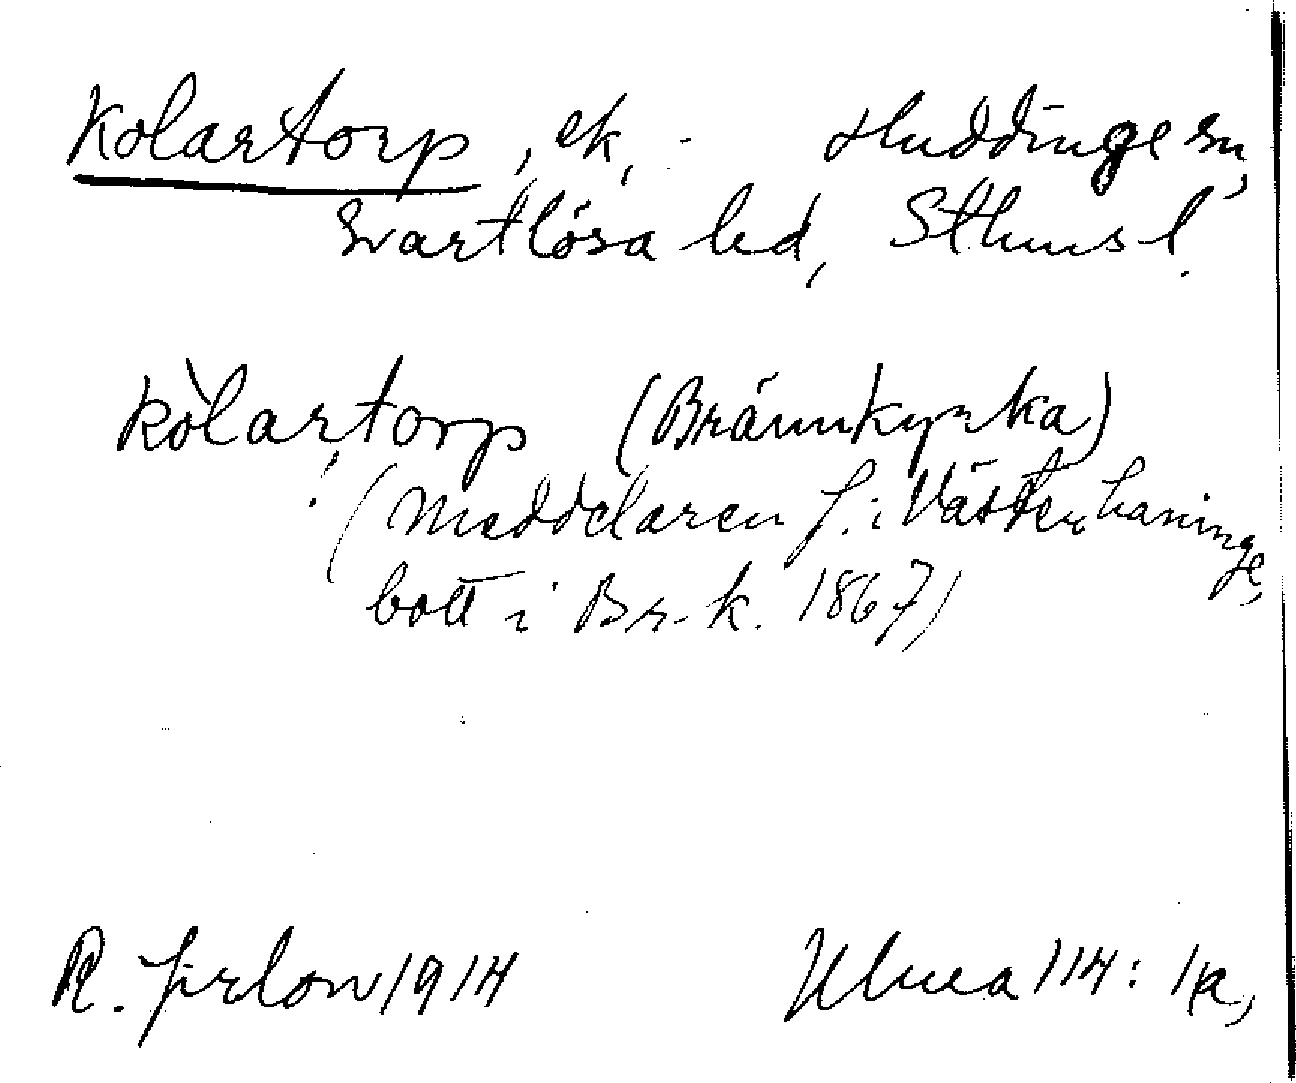 Kolartorp, ek, Huddinge sn,
Svartlösa hd, Sthms l.
kòlartorp (Brännkyrka)
(Meddelaren f. i Västerhaninge,
bott i Br-k. 1867)
R. Jirlow 1914 Ulma 114: 1a,